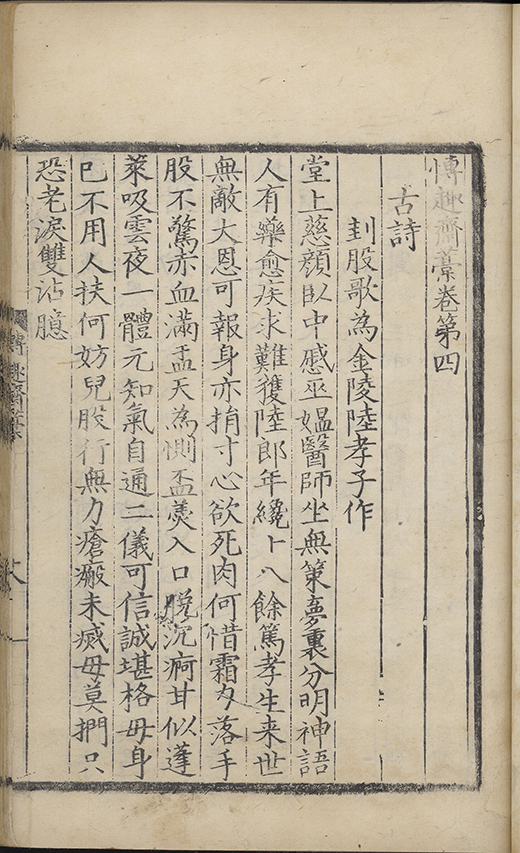 博趣齋藁卷第四
古詩
刲股歌為金陵陸孝子作
堂上慈顔臥中慼巫媪醫師坐無策夢裏分明神語
人有藥愈疾求難獲陸郎年纔十八餘篤孝生来世
無敵大恩可報身亦捐寸心欲死肉何惜霜刀落手
股不驚赤血滿盂天為惻盃羮入口脫沉痾甘似蓬
萊吸雲夜一體元知氣自通二儀可信誠堪格母身
已不用人扶何妨兒股行無力瘡瘢未滅母莫捫只
恐老淚雙沾臆
博趣齋藁